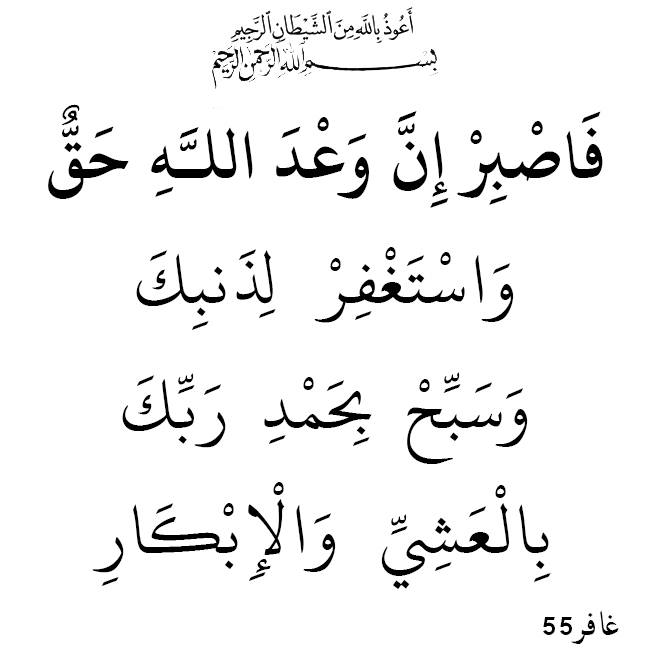 أَعُوذُ بِاللَّهِ مِنَ الشَّيْطَانِ الرَّجِيمِ
بِسْمِ اللَّهِ الرَّحْمَنِ الرَّحِيمِ
فَاصْبِرْ إِنَّ وَعْدَ اللَّهِ حَقٌّ
وَاسْتَغْفِرْ لِذَنبِكَ
وَسَبِّحْ بِحَمْدِ رَبِّكَ
بِالْعَشِيِّ وَالْإِبْكَارِ
غافر55